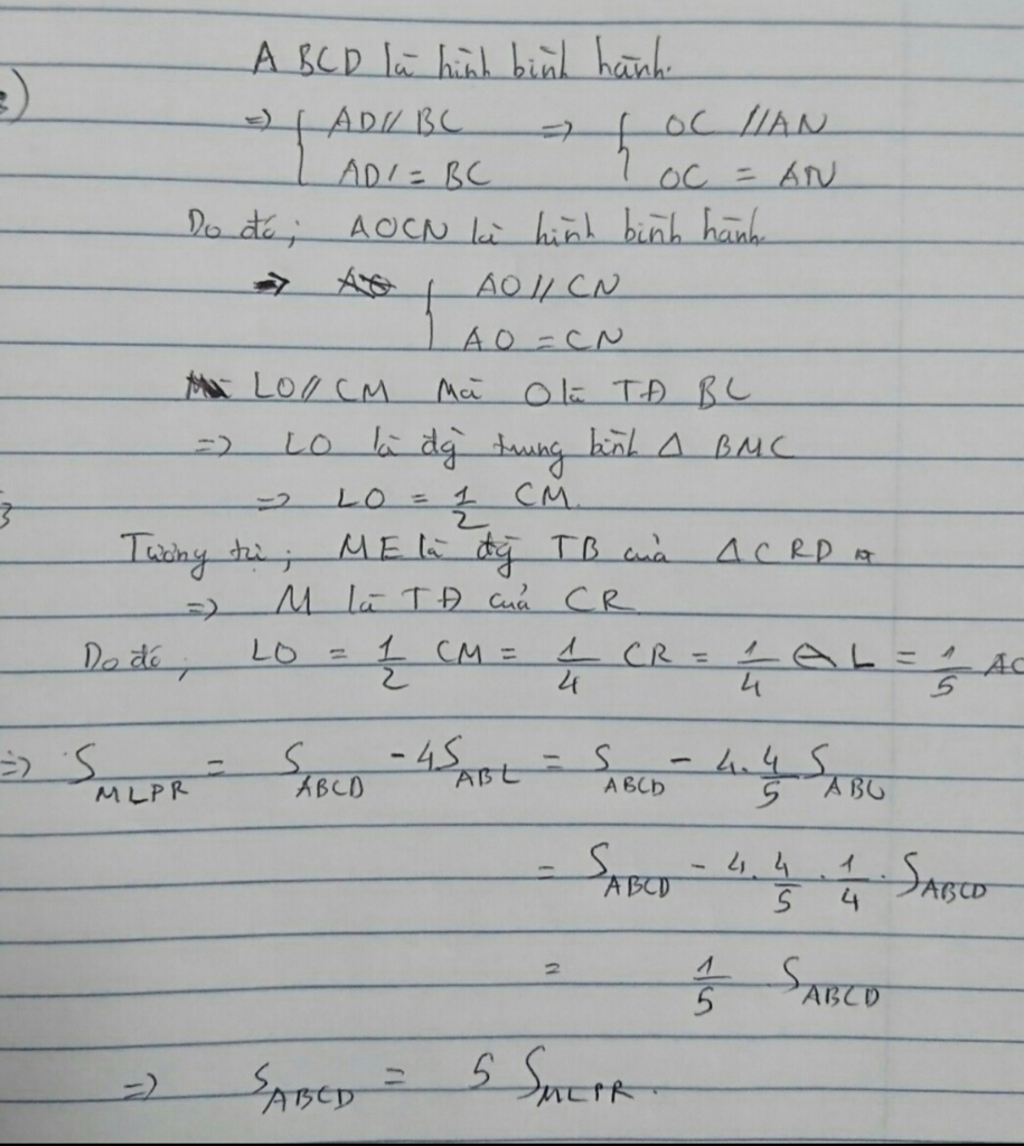 ABCD là hình bình hành.
=> { AD // BC => { OC // AN
AD = BC OC = AN
Do đó; AOCN là hình bình hành
=> { AO // CN
AO = CN
LO // CM Mà O là TĐ BC
=> LO là đg trung bình Δ BMC
=> LO = 1/2 CM.
Tương tự; ME là đg TB của Δ CRD
=> M là TĐ của CR
Do đó; LO = 1/2 CM = 1/4 CR = 1/4 AL = 1/5 AO
=> S_MLPR = S_ABCD - 4S_ABL = S_ABCD - 4. 4/5 S_ABO
= S_ABCD - 4. 4/5 . 1/4 . S_ABCD
= 1/5 S_ABCD
=> S_ABCD = 5 S_MLPR.